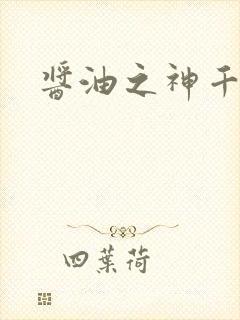 醬油之神千
四葉荷